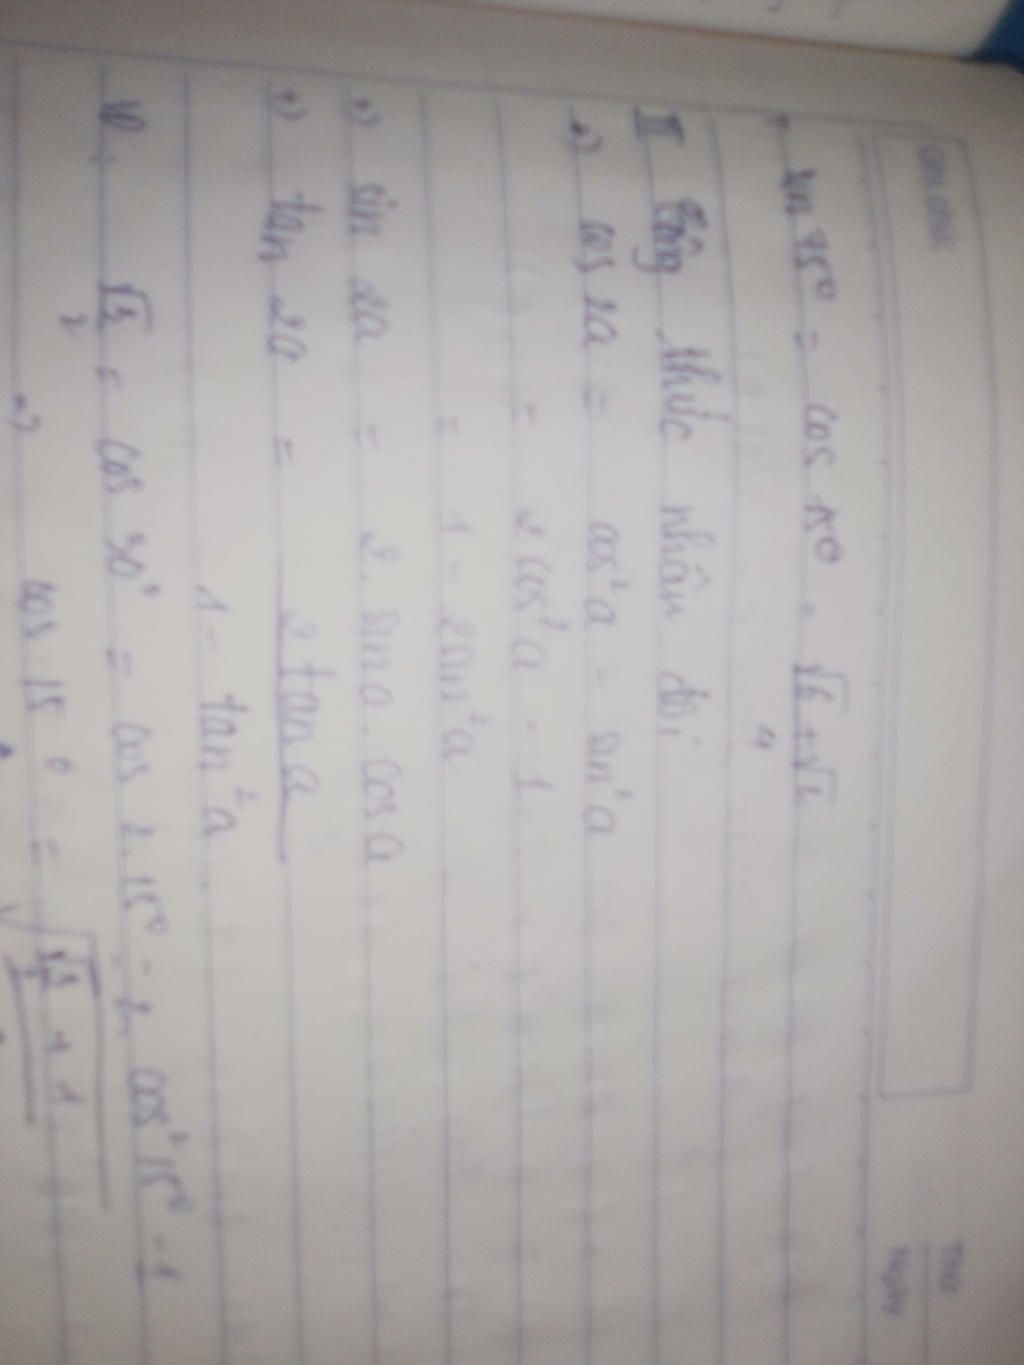 Thứ
Ngày
sin 75° = cos 15° = √6 + √2
4
II Công thức nhân đôi
•) cos 2a = cos²a - sin²a
= 2 cos²a - 1
= 1 - 2sin²a
•) sin 2a = 2. sin a. cos a
•) tan 2a = 2 tan a
1 - tan²a
VD: √3/2 = cos 30° = cos 2.15° = 2 cos²15° - 1
=> cos 15° = √ √3/2 + 1